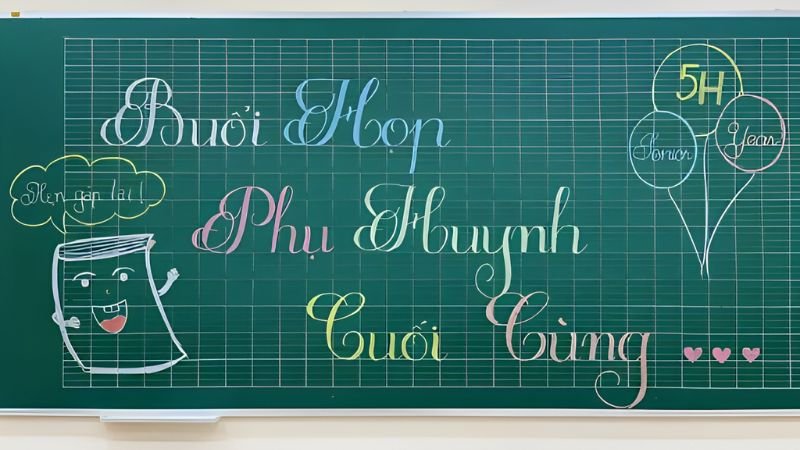 Buổi Họp
Phụ Huynh
Cuối Cùng
Hẹn gặp lại!
5H